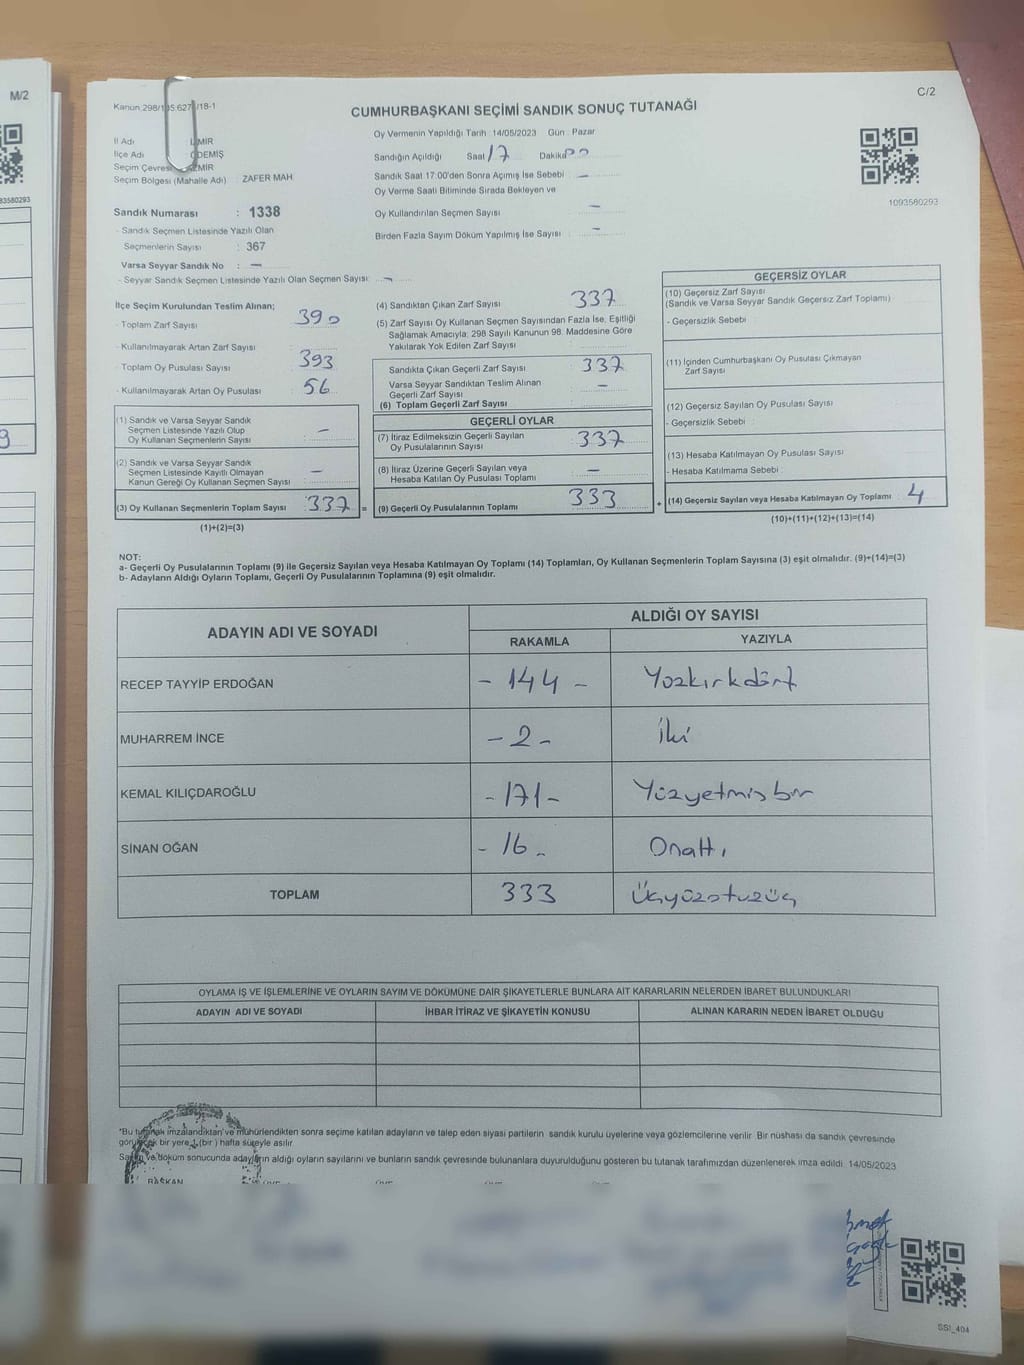 M/2
93580293
Kanun 298/105 627 /18-1
CUMHURBAŞKANI SEÇİMİ SANDIK SONUÇ TUTANAĞI
C/2
1093580293
İl Adı : İZMİR
İlçe Adı : ÖDEMİŞ
Seçim Çevresi : İZMİR
Seçim Bölgesi (Mahalle Adı) : ZAFER MAH.
Sandık Numarası : 1338
- Sandık Seçmen Listesinde Yazılı Olan
Seçmenlerin Sayısı : 367
Varsa Seyyar Sandık No : —
- Seyyar Sandık Seçmen Listesinde Yazılı Olan Seçmen Sayısı: —
Oy Vermenin Yapıldığı Tarih : 14/05/2023 Gün : Pazar
Sandığın Açıldığı Saat 17 Dakika 00
Sandık Saat 17:00'den Sonra Açımış İse Sebebi : —
Oy Verme Saati Bitiminde Sırada Bekleyen ve
Oy Kullandırılan Seçmen Sayısı : —
Birden Fazla Sayım Döküm Yapılmış İse Sayısı : —
İlçe Seçim Kurulundan Teslim Alınan;
- Toplam Zarf Sayısı : 390
- Kullanılmayarak Artan Zarf Sayısı
- Toplam Oy Pusulası Sayısı : 393
- Kullanılmayarak Artan Oy Pusulası : 56
(1) Sandık ve Varsa Seyyar Sandık
Seçmen Listesinde Yazılı Olup
Oy Kullanan Seçmenlerin Sayısı : —
(2) Sandık ve Varsa Seyyar Sandık
Seçmen Listesinde Kayıtlı Olmayan
Kanun Gereği Oy Kullanan Seçmen Sayısı : —
(3) Oy Kullanan Seçmenlerin Toplam Sayısı : 337 =
(1)+(2)=(3)
(4) Sandıktan Çıkan Zarf Sayısı : 337
(5) Zarf Sayısı Oy Kullanan Seçmen Sayısından Fazla İse, Eşitliği
Sağlamak Amacıyla; 298 Sayılı Kanunun 98. Maddesine Göre
Yakılarak Yok Edilen Zarf Sayısı :
Sandıkta Çıkan Geçerli Zarf Sayısı : 337
Varsa Seyyar Sandıktan Teslim Alınan
Geçerli Zarf Sayısı : —
(6) Toplam Geçerli Zarf Sayısı :
GEÇERLİ OYLAR
(7) İtiraz Edilmeksizin Geçerli Sayılan
Oy Pusulalarının Sayısı : 337
(8) İtiraz Üzerine Geçerli Sayılan veya
Hesaba Katılan Oy Pusulası Toplamı : —
(9) Geçerli Oy Pusulalarının Toplamı : 333 +
GEÇERSİZ OYLAR
(10) Geçersiz Zarf Sayısı
(Sandık ve Varsa Seyyar Sandık Geçersiz Zarf Toplamı) :
- Geçersizlik Sebebi :
(11) İçinden Cumhurbaşkanı Oy Pusulası Çıkmayan
Zarf Sayısı :
(12) Geçersiz Sayılan Oy Pusulası Sayısı :
- Geçersizlik Sebebi :
(13) Hesaba Katılmayan Oy Pusulası Sayısı :
- Hesaba Katılmama Sebebi :
(14) Geçersiz Sayılan veya Hesaba Katılmayan Oy Toplamı : 4
(10)+(11)+(12)+(13)=(14)
NOT:
a- Geçerli Oy Pusulalarının Toplamı (9) ile Geçersiz Sayılan veya Hesaba Katılmayan Oy Toplamı (14) Toplamları, Oy Kullanan Seçmenlerin Toplam Sayısına (3) eşit olmalıdır. (9)+(14)=(3)
b- Adayların Aldığı Oyların Toplamı, Geçerli Oy Pusulalarının Toplamına (9) eşit olmalıdır.
ADAYIN ADI VE SOYADI
ALDIĞI OY SAYISI
RAKAMLA YAZIYLA
RECEP TAYYİP ERDOĞAN - 144 - Yüzkırkdört
MUHARREM İNCE - 2 - İki
KEMAL KILIÇDAROĞLU - 171 - Yüzyetmişbir
SİNAN OĞAN - 16 - Onaltı
TOPLAM 333 Üçyüzotuzüç
OYLAMA İŞ VE İŞLEMLERİNE VE OYLARIN SAYIM VE DÖKÜMÜNE DAİR ŞİKAYETLERLE BUNLARA AİT KARARLARIN NELERDEN İBARET BULUNDUKLARI
ADAYIN ADI VE SOYADI İHBAR İTİRAZ VE ŞİKAYETİN KONUSU ALINAN KARARIN NEDEN İBARET OLDUĞU
*Bu tutanak imzalandıktan ve mühürlendikten sonra seçime katılan adayların ve talep eden siyasi partilerin sandık kurulu üyelerine veya gözlemcilerine verilir. Bir nüshası da sandık çevresinde
görülecek bir yere 1 (bir ) hafta süreyle asılır.
Sayım ve döküm sonucunda adayların aldığı oyların sayılarını ve bunların sandık çevresinde bulunanlara duyurulduğunu gösteren bu tutanak tarafımızdan düzenlenerek imza edildi. 14/05/2023
BAŞKAN
SS1_404